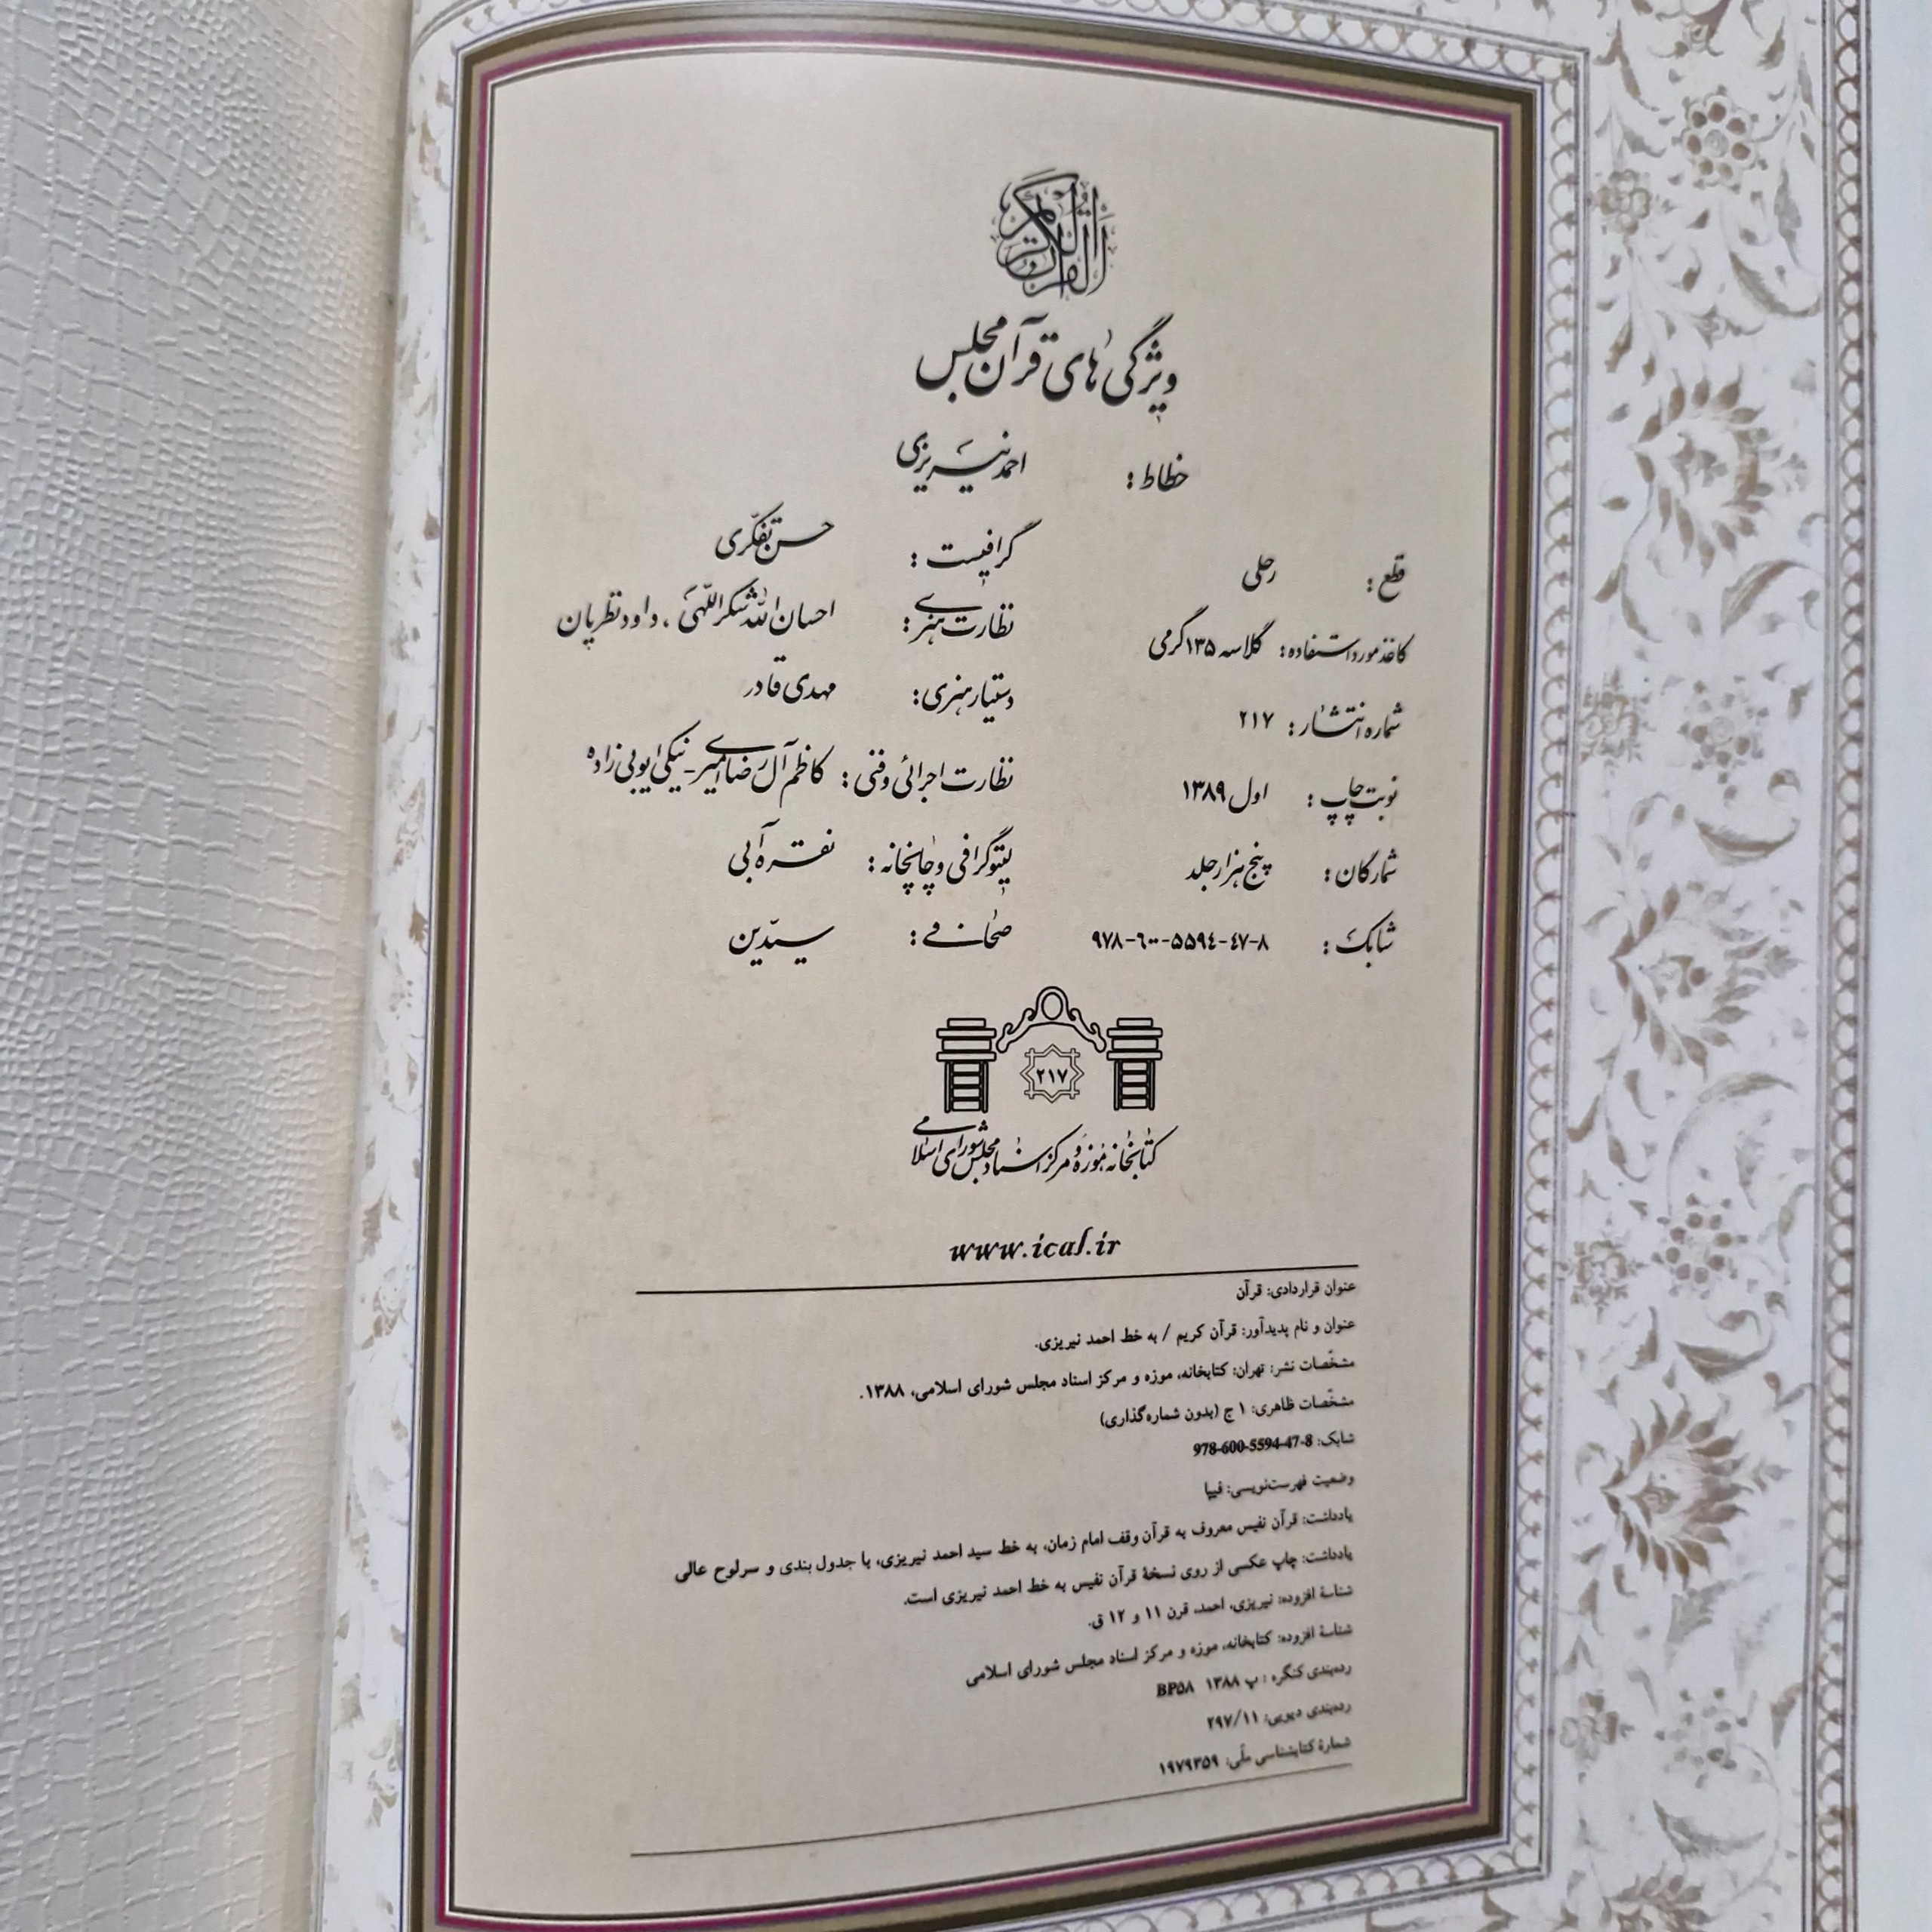 القرآن الکریم
ویژگی های قرآن مجلس
خطاط : احمد نیریزی
قطع : رحلی
کاغذ مورد استفاده : گلاسه ۱۳۵ گرمی
شماره انتشار : ۲۱۷
نوبت چاپ : اول ۱۳۸۹
شمارگان : پنج هزار جلد
شابک : ۹۷۸-۶۰۰-۵۵۹٤-٤۷-۸
گرافیست : حسن تفکّری
نظارت هنری : احسان الله شکراللّهی ، داود نظریان
دستیار هنری : مهدی قادر
نظارت اجرائی و فنی : کاظم آل رضا امیری - نیکی ایوبی زاده
لیتوگرافی و چاپخانه : نقره آبی
صحافی : سیدّین
۲۱۷
کتابخانه موزه و مرکز اسناد مجلس شورای اسلامی
www.ical.ir
عنوان قراردادی: قرآن
عنوان و نام پدیدآور: قرآن کریم / به خط احمد نیریزی.
مشخّصات نشر: تهران: کتابخانه، موزه و مرکز اسناد مجلس شورای اسلامی، ۱۳۸۸.
مشخّصات ظاهری: ۱ ج (بدون شماره‌گذاری)
شابک: 978-600-5594-47-8
وضعیت فهرست‌نویسی: فیپا
یادداشت: قرآن نفیس معروف به قرآن وقف امام زمان، به خط سید احمد نیریزی، با جدول بندی و سرلوح عالی
یادداشت: چاپ عکسی از روی نسخهٔ قرآن نفیس به خط احمد نیریزی است.
شناسهٔ افزوده: نیریزی، احمد، قرن ۱۱ و ۱۲ ق.
شناسهٔ افزوده: کتابخانه، موزه و مرکز اسناد مجلس شورای اسلامی
رده‌بندی کنگره : پ ۱۳۸۸ BP۵۸
رده‌بندی دیویی: ۲۹۷/۱۱
شمارهٔ کتابشناسی ملّی: ۱۹۷۹۳۵۹